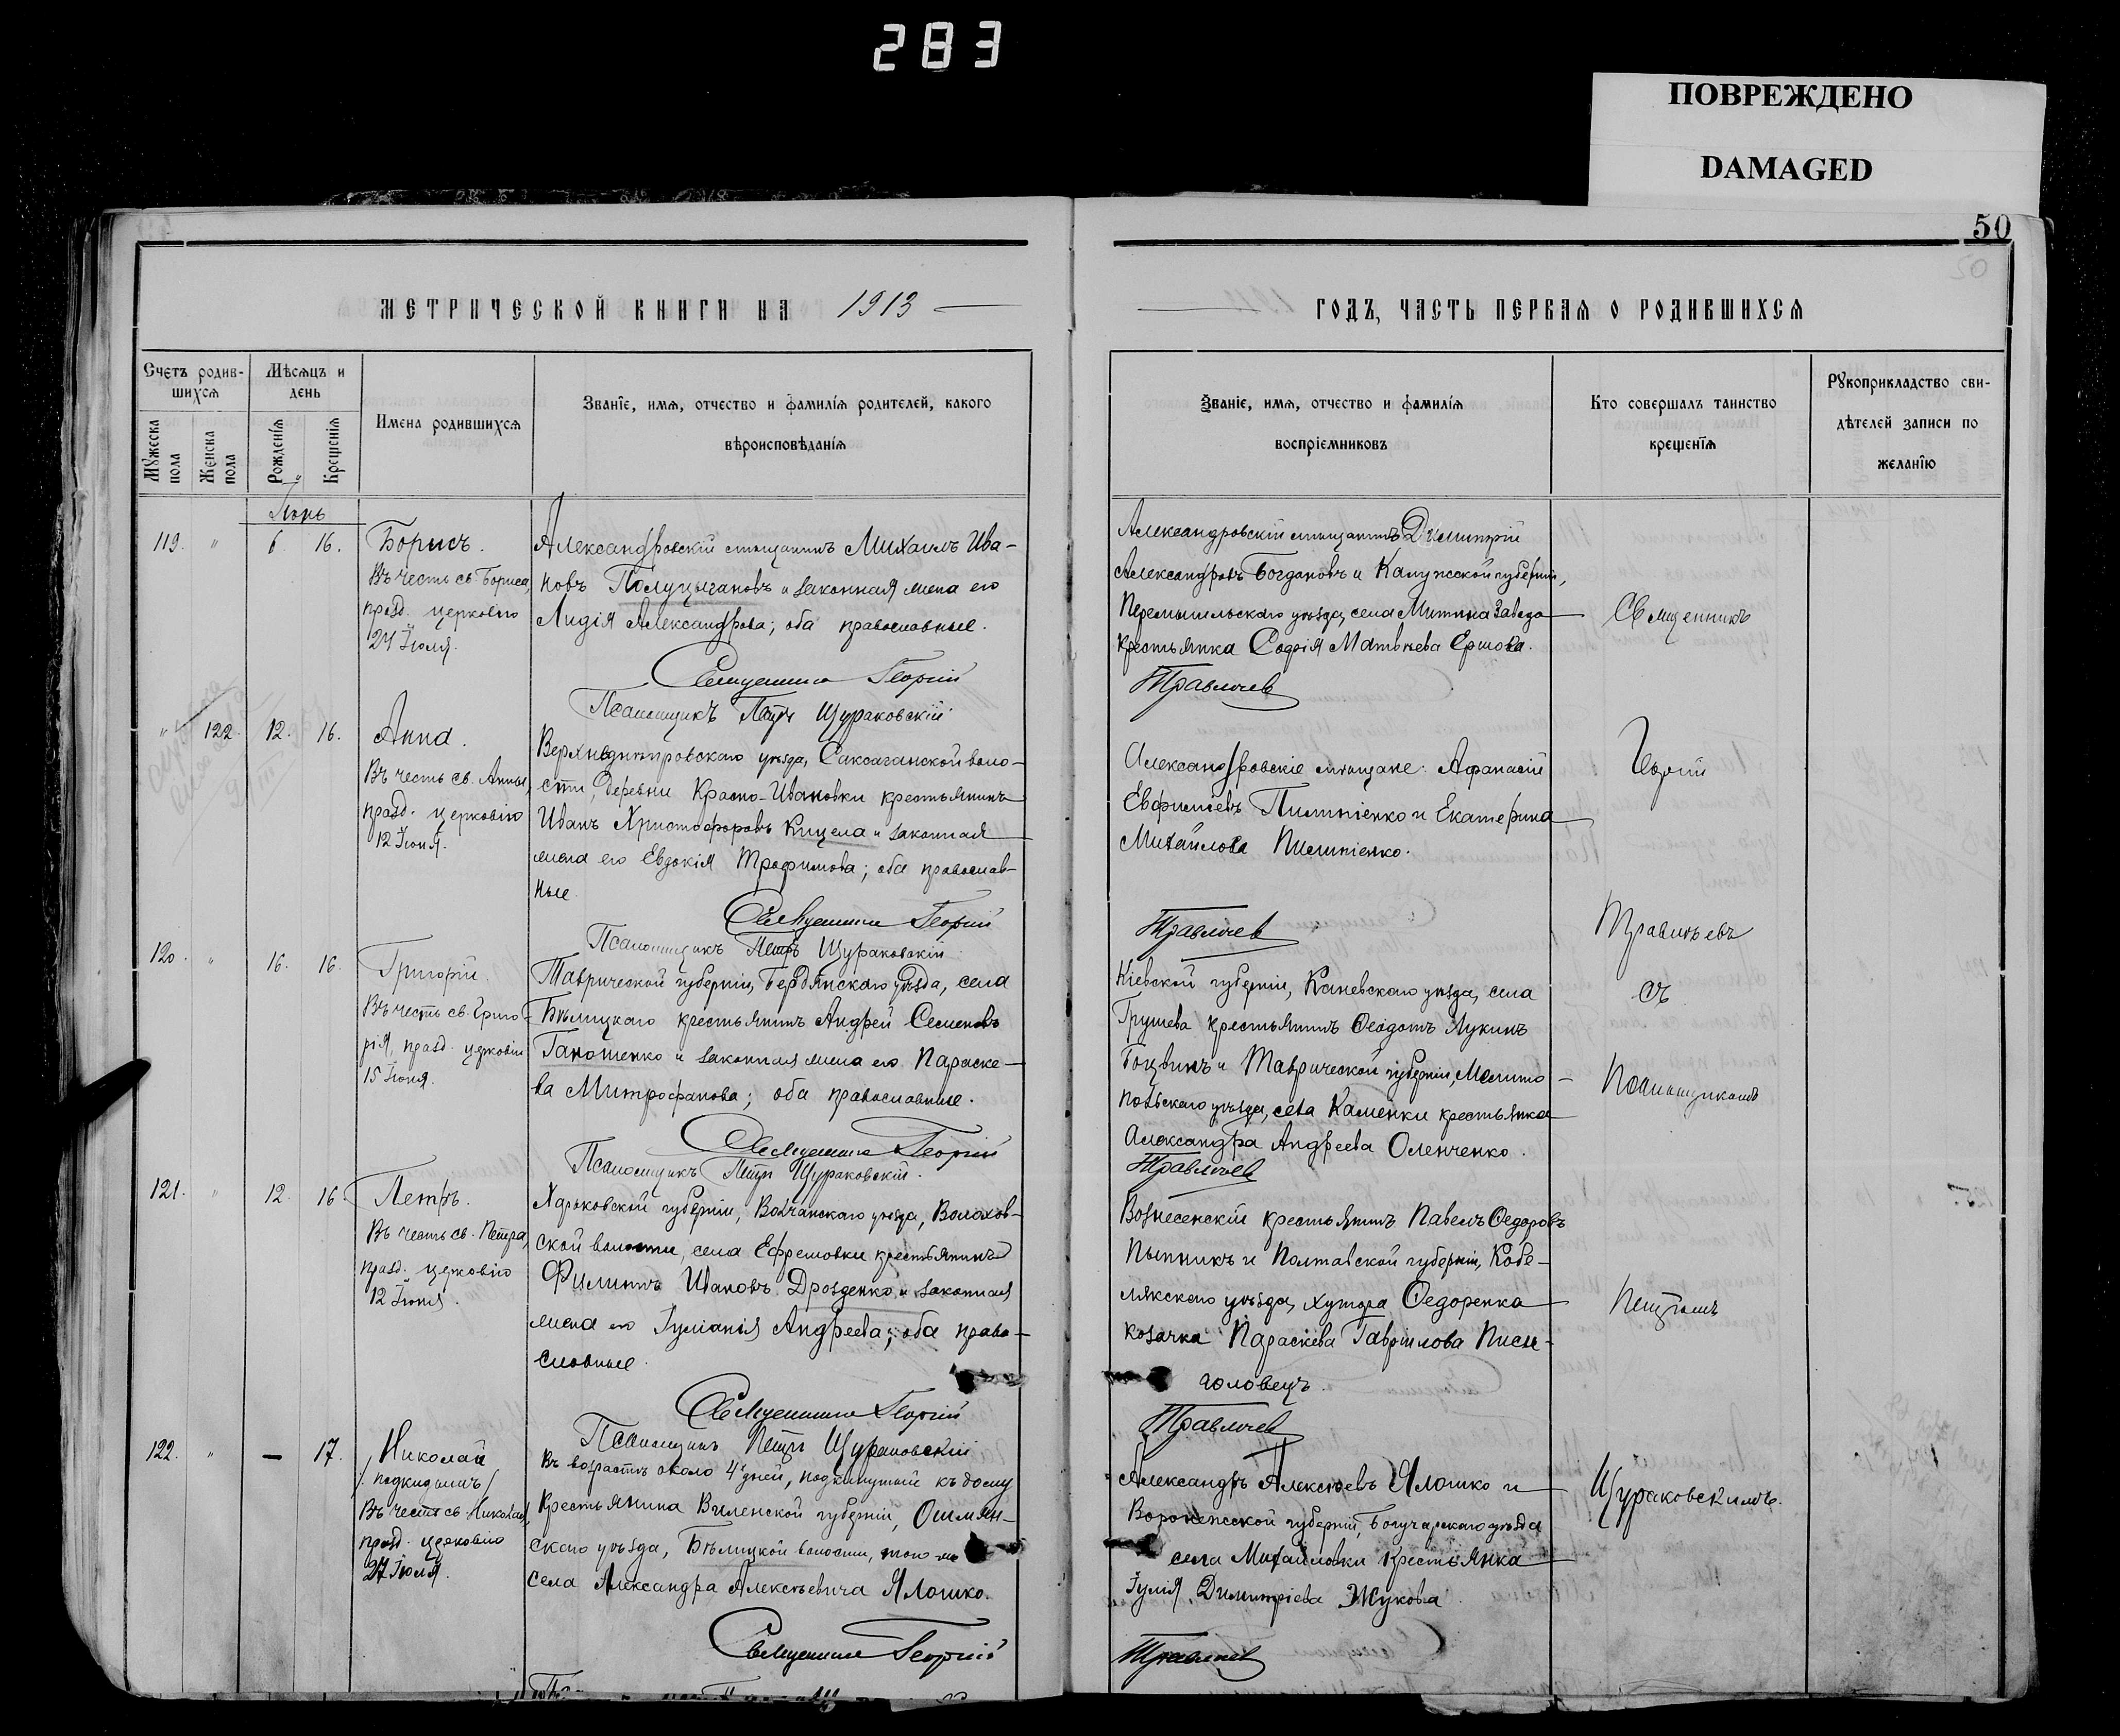 283
ПОВРЕЖДЕНО
DAMAGED
50
50
МЕТРИЧЕСКОЙ КНИГИ НА 1913
ГОДЪ, ЧАСТЬ ПЕРВАЯ О РОДИВШИХСЯ
Счетъ родив-
шихся
Мѣсяцъ и
день
Мужеска
пола
Женска
пола
Рожденія
Крещенія
Имена родившихся
Званіе, имя, отчество и фамилія родителей, какого
вѣроисповѣданія
Званіе, имя, отчество и фамилія
воспріемниковъ
Кто совершалъ таинство
крещенія
Рукоприкладство сви-
дѣтелей записи по
желанію
Іюнь
119. " 6. 16.
Борисъ.
Въ честь св. Бориса,
празд. церковію
24 Іюля.
Александровскій мѣщанинъ Михаилъ Ива-
новъ Полуцыгановъ и законная жена его
Лидія Александрова; оба православные.
Священникъ Георгій
Псаломщикъ Петръ Щураковскій
Александровскій мѣщанинъ Димитрій
Александровъ Богдановъ и Калужской губерніи,
Перемышльскаго уѣзда, села Митина Завода
крестьянка Софія Матвѣева Ершова.
Травлѣевъ
" 122. 12. 16.
Анна.
Въ честь св. Анны,
празд. церковію
12 Іюня.
Верхнеднѣпровскаго уѣзда, Саксаганской воло-
сти, деревни Красно-Ивановки крестьянинъ
Иванъ Христофоровъ Кицела и законная
жена его Евдокія Трофимова; оба православ-
ные.
Священникъ Георгій
Псаломщикъ Петръ Щураковскій
Александровскіе мѣщане: Афанасій
Евфиміевъ Пилипенко и Екатерина
Михайлова Пилипенко.
Травлѣевъ
120. " 16. 16.
Григорій.
Въ честь св. Григо-
рія, празд. церковію
15 Іюня.
Таврической губерніи, Бердянскаго уѣзда, села
Бѣлицкаго крестьянинъ Андрей Семеновъ
Ганошенко и законная жена его Параске-
ва Митрофанова; оба православные.
Священникъ Георгій
Псаломщикъ Петръ Щураковскій.
Кіевской губерніи, Каневскаго уѣзда, села
Грушева крестьянинъ Ѳеодотъ Лукинъ
Боцвинъ и Таврической губерніи, Мелито-
польскаго уѣзда, села Каменки крестьянка
Александра Андреева Оленченко.
Травлѣевъ
121. " 12. 16.
Петръ.
Въ честь св. Петра,
празд. церковію
12 Іюня.
Харьковской губерніи, Волчанскаго уѣзда, Волохов-
ской волости, села Ефремовки крестьянинъ
Филиппъ Ивановъ Дрозденко и законная
жена его Іуліанія Андреева; оба право-
славные.
Священникъ Георгій
Псаломщикъ Петръ Щураковскій
Вознесенскій крестьянинъ Павелъ Ѳедоровъ
Пынникъ и Полтавской губерніи, Кобе-
лякскаго уѣзда, хутора Ѳедоренка
козачка Параскева Гавріилова Писа-
головецъ.
Травлѣевъ
122. " — 17.
Николай
/подкидышъ/
Въ честь св. Николая,
празд. церковію
27 Іюля.
Въ возрастѣ около 4х дней, подкинутый къ дому
крестьянина Виленской губерніи, Ошмян-
скаго уѣзда, Бѣлицкой волости, того же
села Александра Алексѣевича Ялошко.
Священникъ Георгій
Александръ Алексѣевъ Ялошко и
Воронежской губерніи, Богучарскаго уѣзда
села Михайловки крестьянка
Іулія Димитріева Жукова.
Травлѣевъ
Священникъ
Георгій
Травлѣевъ
съ
Псаломщикомъ
Петромъ
Щураковскимъ.